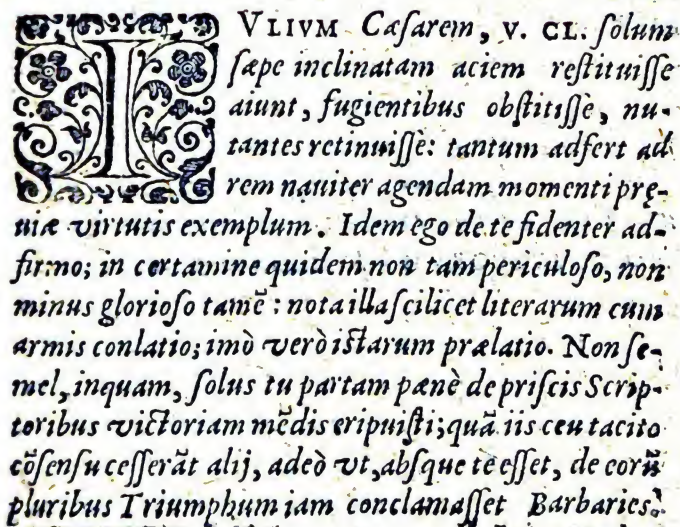 IVLIVM Cæſarem, V. CL. ſolum
ſæpe inclinatam aciem reſtituiſſe
aiunt, fugientibus obſtitiſſè, nu-
tantes retinuiſſè: tantum adfert ad
rem nauiter agendam momenti prę-
uiæ virtutis exemplum. Idem ego de te fidenter ad-
firmo; in certamine quidem non tam periculoſo, non
minus glorioſo tamẽ: nota illa ſcilicet literarum cum
armis conlatio; imò verò iſtarum prælatio. Non ſe-
mel, inquam, ſolus tu partam pænè de priſcis Scrip-
toribus victoriam mẽdis eripuiſti; quã iis ceu tacito
cõſenſu ceſſerãt alij, adeò vt, abſque te eſſet, de eorũ
pluribus Triumphum iam conclamaſſet Barbaries.